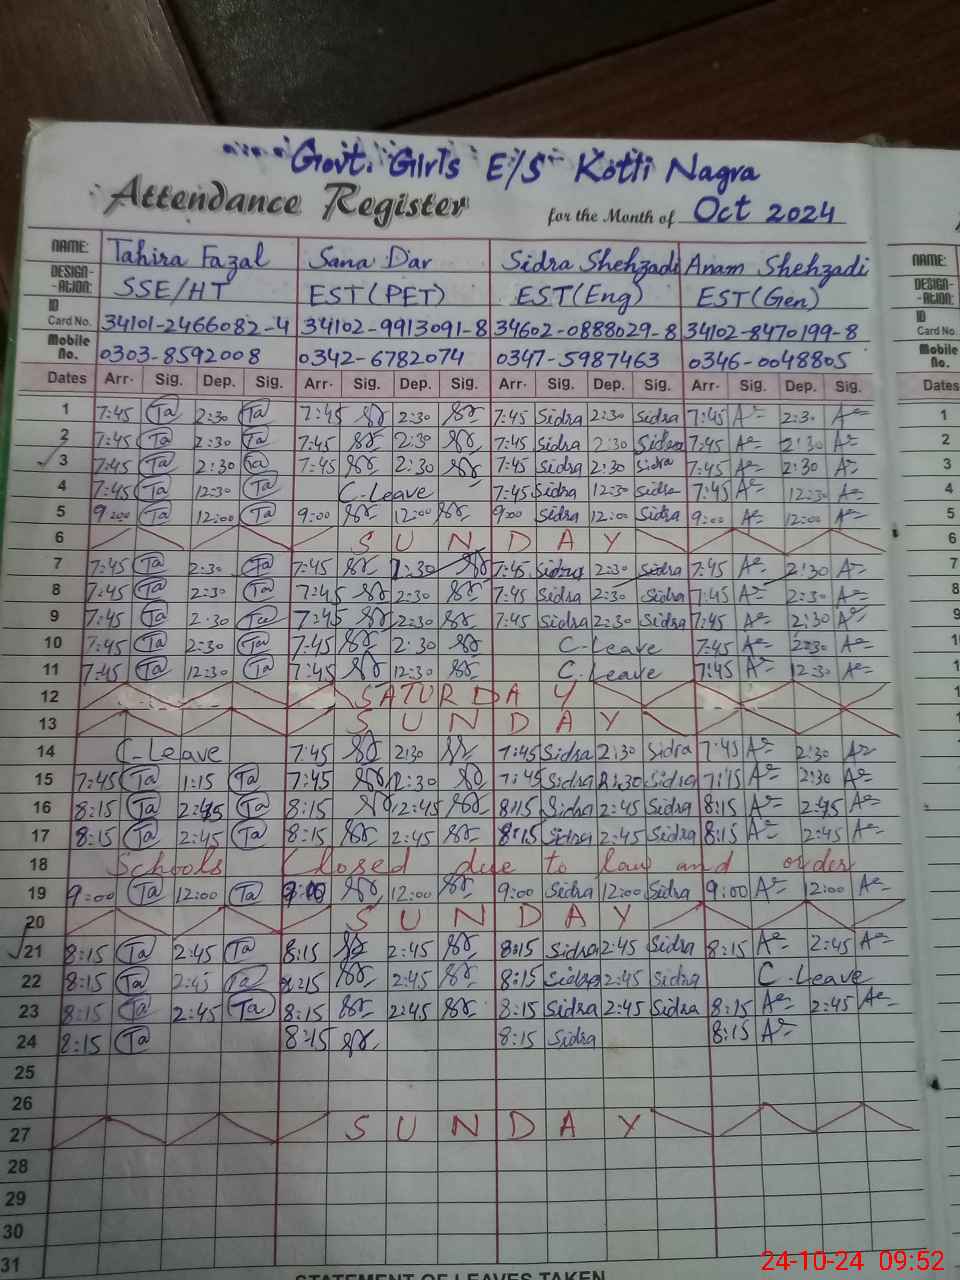 Govt. Girls E/S Kotli Nagra
Attendance Register for the Month of Oct 2024
NAME: Tahira Fazal Sana Dar Sidra Shehzadi Anam Shehzadi NAME:
DESIGN-ATION: SSE/HT EST(PET) EST(Eng) EST(Gen) DESIGN-ATION:
ID Card No. 34101-2466082-4 34102-9913091-8 34602-0888029-8 34102-8470199-8 ID Card No.
Mobile No. 0303-8592008 0342-6782074 0347-5987463 0346-0048805 Mobile No.
Dates Arr. Sig. Dep. Sig. Arr. Sig. Dep. Sig. Arr. Sig. Dep. Sig. Arr. Sig. Dep. Sig. Dates
1 7:45 Ta 2:30 Ta 7:45 2:30 7:45 Sidra 2:30 Sidra 7:45 2:30 1
2 7:45 Ta 2:30 Ta 7:45 2:30 7:45 Sidra 2:30 Sidra 7:45 2:30 2
3 7:45 Ta 2:30 Ta 7:45 2:30 7:45 Sidra 2:30 Sidra 7:45 2:30 3
4 7:45 Ta 12:30 Ta C-Leave 7:45 Sidra 12:30 Sidra 7:45 12:30 4
5 9:00 Ta 12:00 Ta 9:00 12:00 9:00 Sidra 12:00 Sidra 9:00 12:00 5
6 SUNDAY 6
7 7:45 Ta 2:30 Ta 7:45 2:30 7:45 Sidra 2:30 Sidra 7:45 2:30 7
8 7:45 Ta 2:30 Ta 7:45 2:30 7:45 Sidra 2:30 Sidra 7:45 2:30 8
9 7:45 Ta 2:30 Ta 7:45 2:30 7:45 Sidra 2:30 Sidra 7:45 2:30 9
10 7:45 Ta 2:30 Ta 7:45 2:30 C-Leave 7:45 2:30
11 7:45 Ta 12:30 Ta 7:45 12:30 C.Leave 7:45 12:30
12 SATURDAY
13 SUNDAY
14 C-Leave 7:45 2:30 7:45 Sidra 2:30 Sidra 7:45 2:30
15 7:45 Ta 1:15 Ta 7:45 2:30 7:45 Sidra 2:30 Sidra 7:45 2:30
16 8:15 Ta 2:45 Ta 8:15 2:45 8:15 Sidra 2:45 Sidra 8:15 2:45
17 8:15 Ta 2:45 Ta 8:15 2:45 8:15 Sidra 2:45 Sidra 8:15 2:45
18 Schools Closed due to law and order
19 9:00 Ta 12:00 Ta 9:00 12:00 9:00 Sidra 12:00 Sidra 9:00 12:00
20 SUNDAY
21 8:15 Ta 2:45 Ta 8:15 2:45 8:15 Sidra 2:45 Sidra 8:15 2:45
22 8:15 Ta 2:45 Ta 8:15 2:45 8:15 Sidra 2:45 Sidra C-Leave
23 8:15 Ta 2:45 Ta 8:15 2:45 8:15 Sidra 2:45 Sidra 8:15 2:45
24 8:15 Ta 8:15 8:15 Sidra 8:15
25
26
27 SUNDAY
28
29
30
31
24-10-24 09:52
STATEMENT OF LEAVES TAKEN